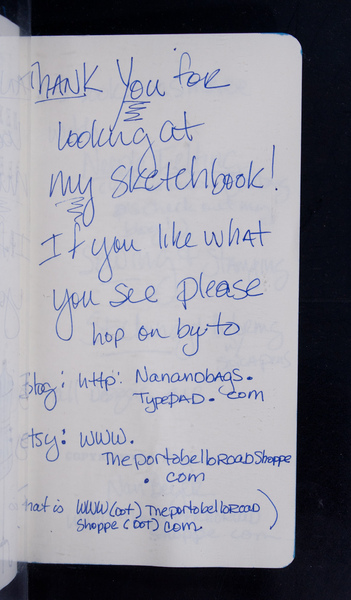 THANK You for
looking at
my sketchbook!
If you like what
you see please
hop on by to
blog: http: Nanandbags.
TypePAD. com
etsy: www.
TheportobelloROADshoppe
. com
that is www(dot) TheportobelloROAD
Shoppe (DOT) com. )